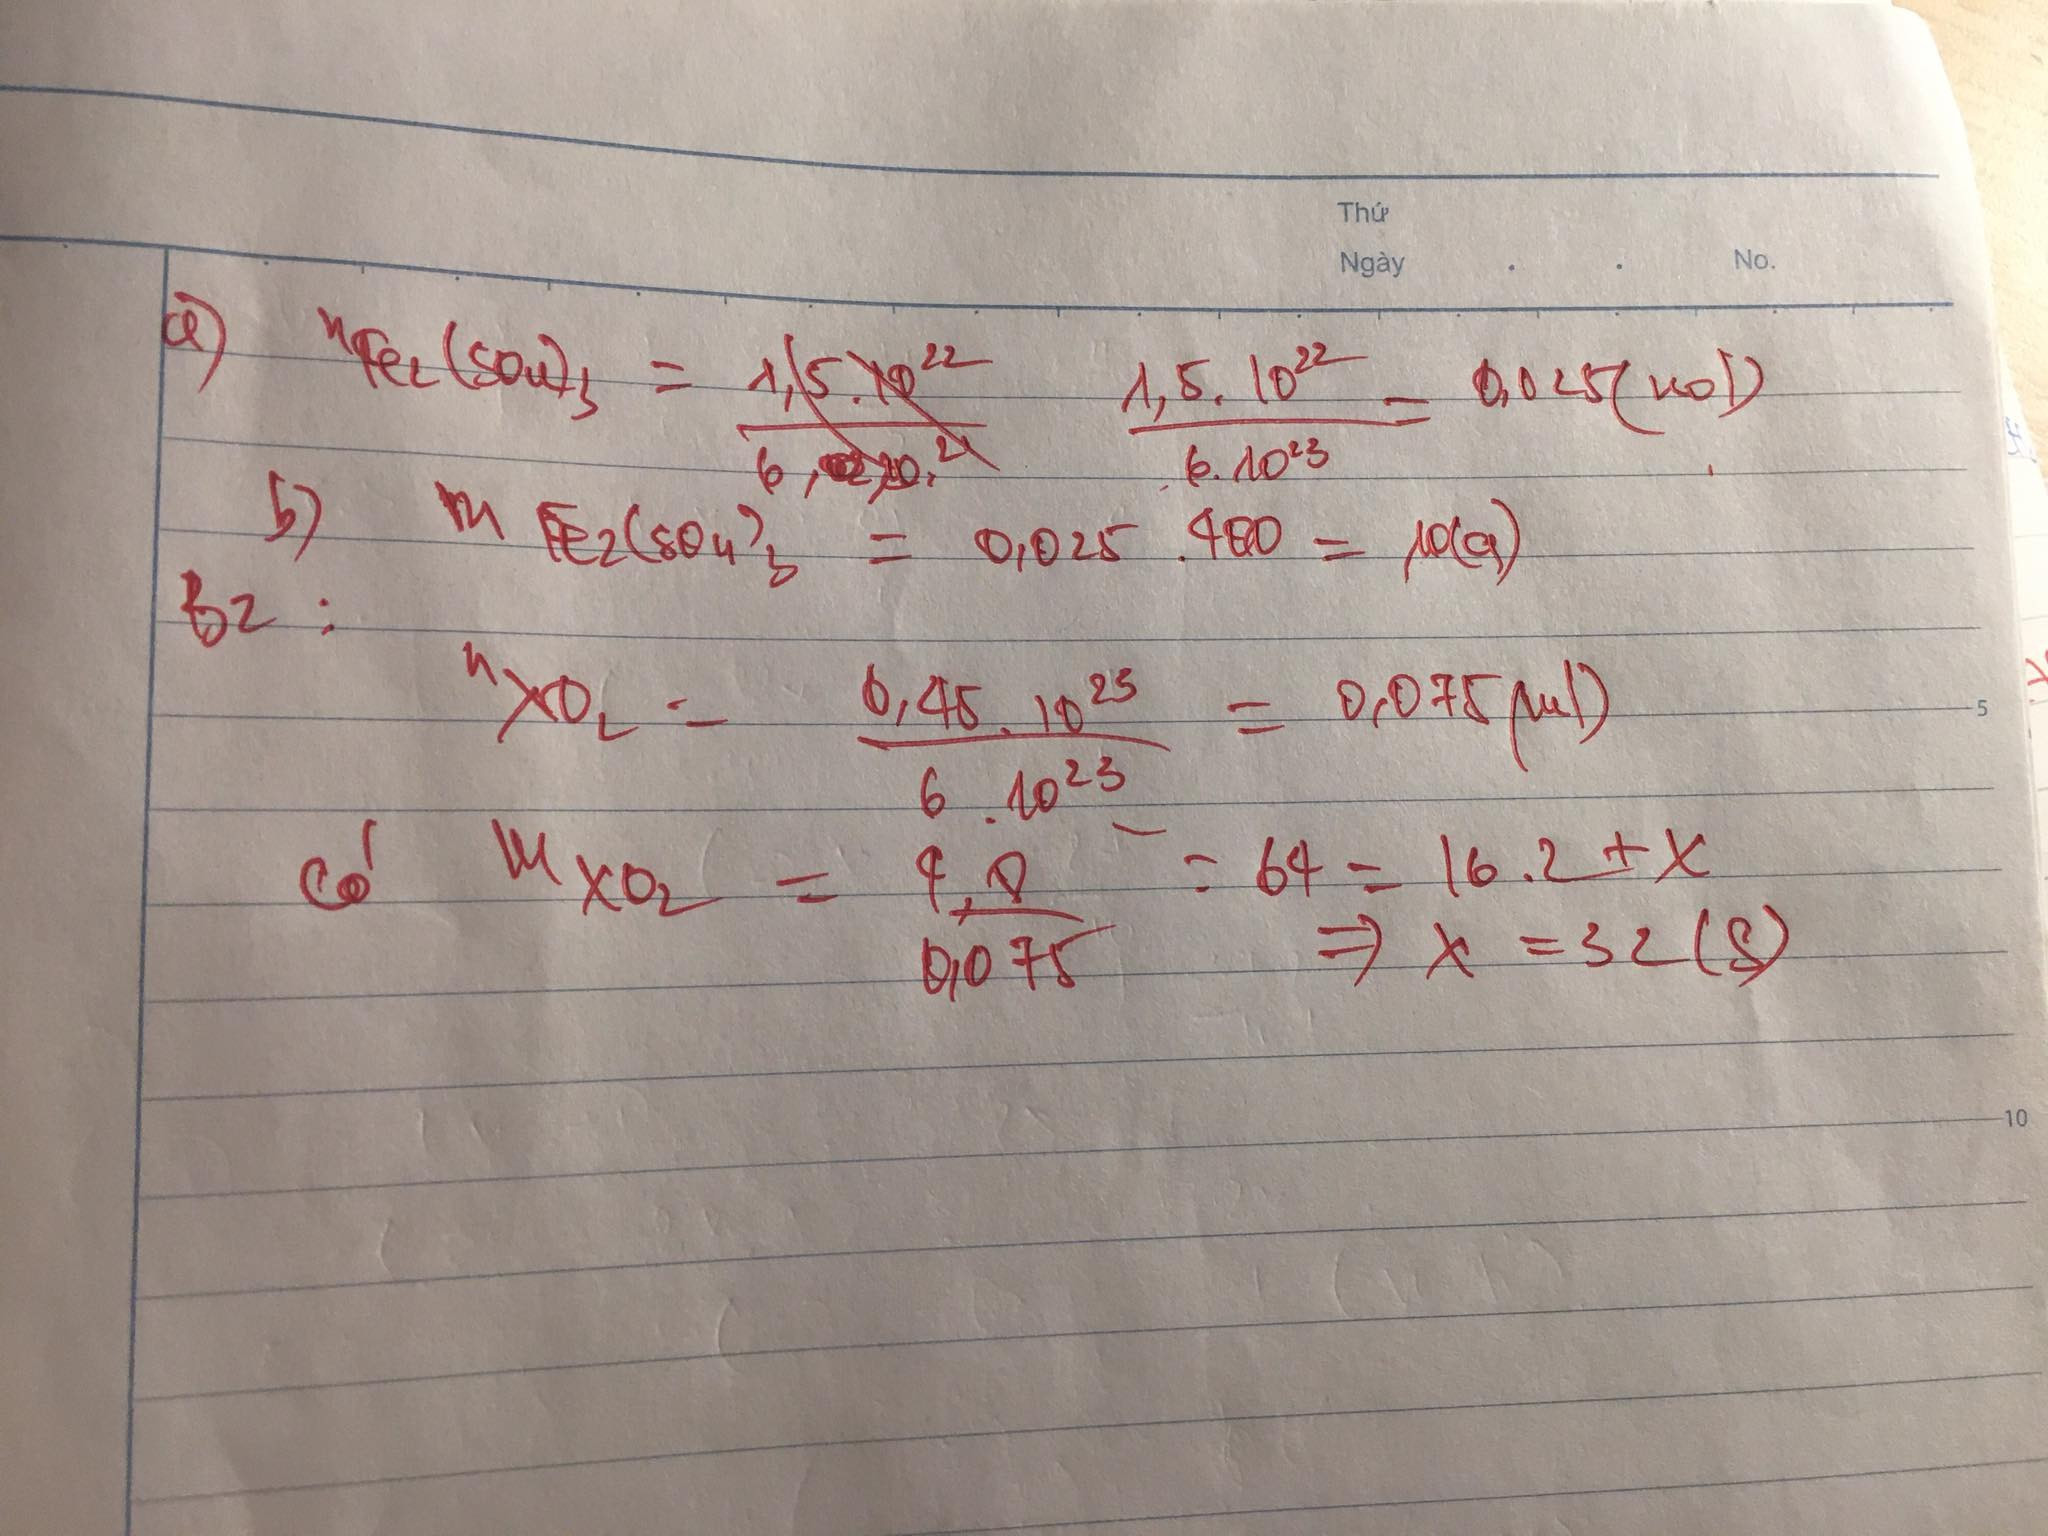 Thứ
Ngày . . No.
a) nFe2(SO4)3 = 1,5.10^22 / 6,02.10.^21 1,5.10^22 / 6.10^23 = 0,025(mol)
b) m Fe2(SO4)3 = 0,025 .400 = 10(g)
B2 :
nXO2 = 0,45.10^23 / 6.10^23 = 0,075(mol)
5
Có mXO2 = 4,8 / 0,075 = 64 = 16.2 + X
=> X = 32 (S)
10